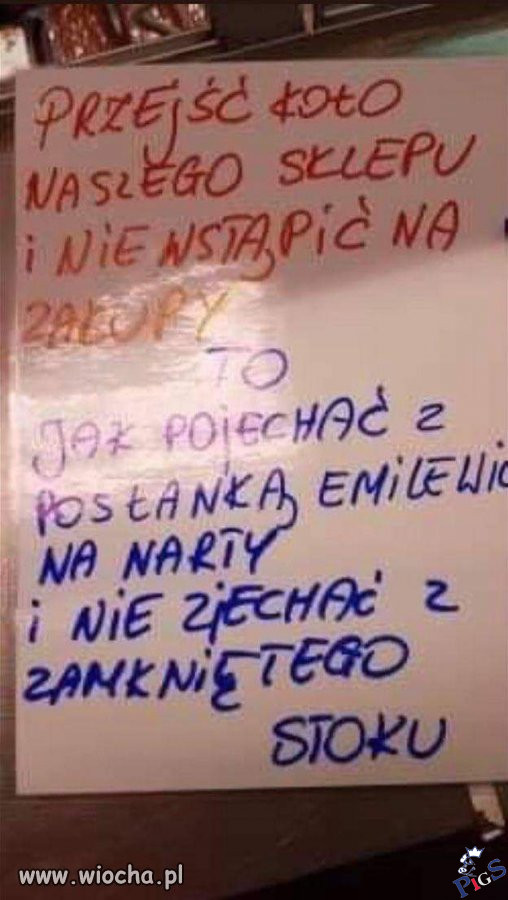 PRZEJŚĆ KOŁO
NASZEGO SKLEPU
i NiE WSTĄPiĆ NA
ZAKUPY
TO
JAK POjECHAĆ Z
POSŁANKĄ EMiLEWiC
NA NARTY
i NiE ZjECHAĆ Z
ZAMKNiĘTEGO
STOKU
www.wiocha.pl
PiGS